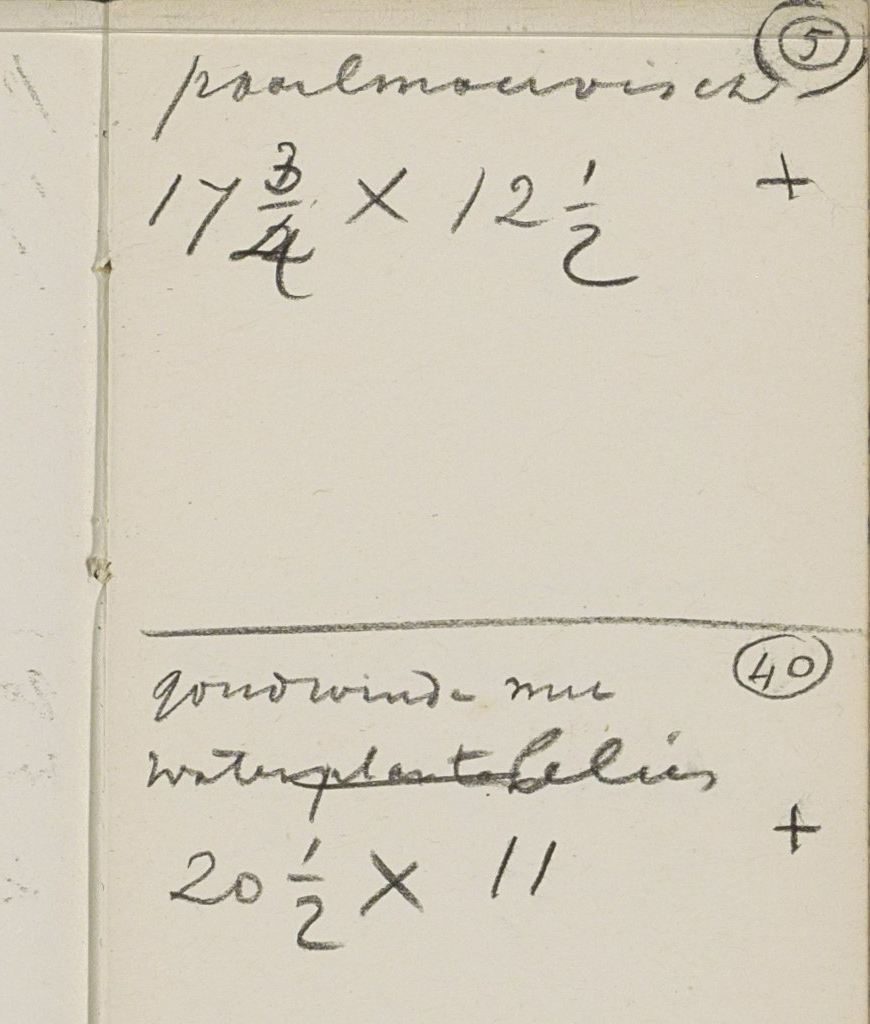 paarlmoervisch 5
17 3/4 × 12 1/2 +
goudwinde met 40
waterplanten lelies
20 1/2 × 11 +